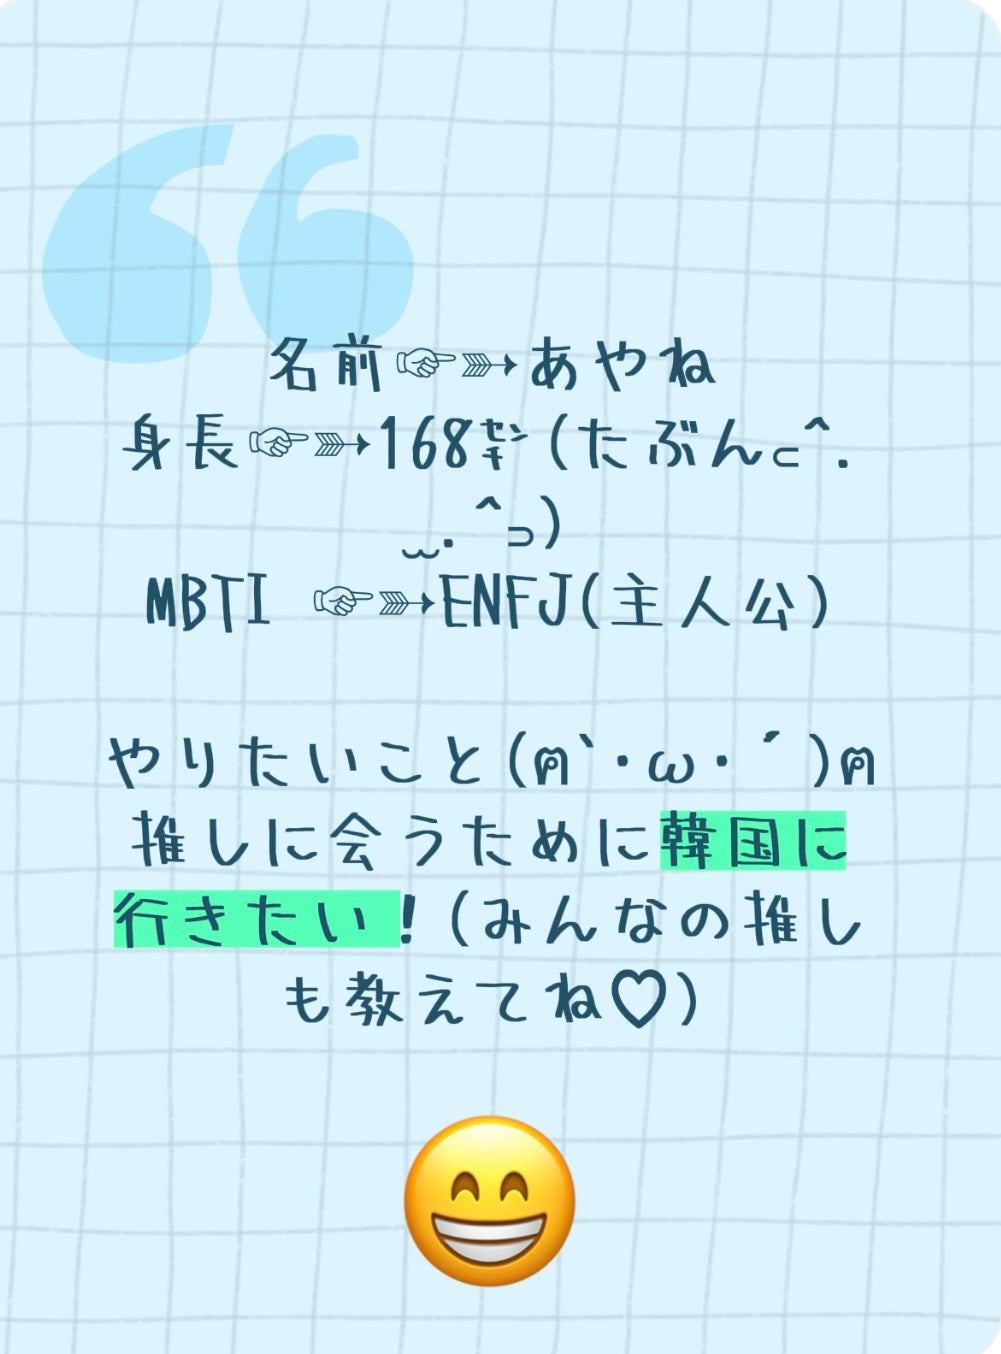 名前☞➳あやね
身長☞➳168㌢(たぶん⊂^.
⏑⏑.^⊃)
MBTI ☞➳ENFJ(主人公)
やりたいこと(ฅ`・ω・´)ฅ
推しに会うために韓国に
行きたい！(みんなの推し
も教えてね♡)